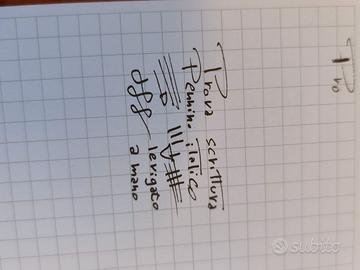 Pro
Prova scrittura
Pennino italico
levigato
a mano
subito